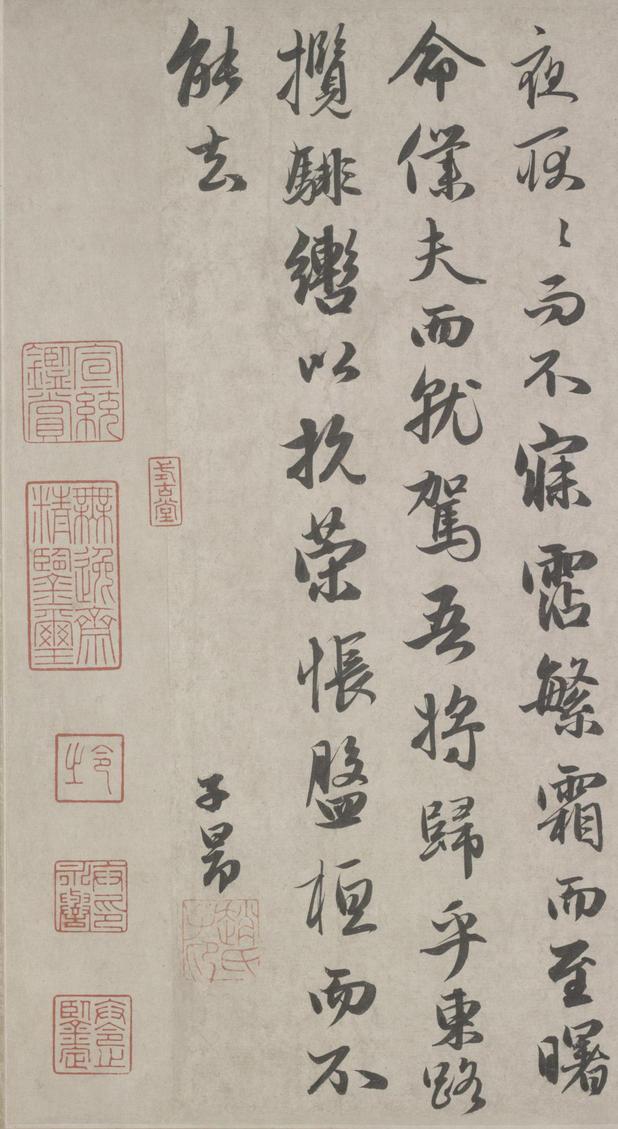 夜耿〻而不寐霑繁霜而至曙
命僕夫而就駕吾將歸乎東路
攬騑轡以抗策悵盤桓而不
能去
子昂
趙氏子昂
式古堂
宣統鑑賞
無逸齋精鑒璽
令之